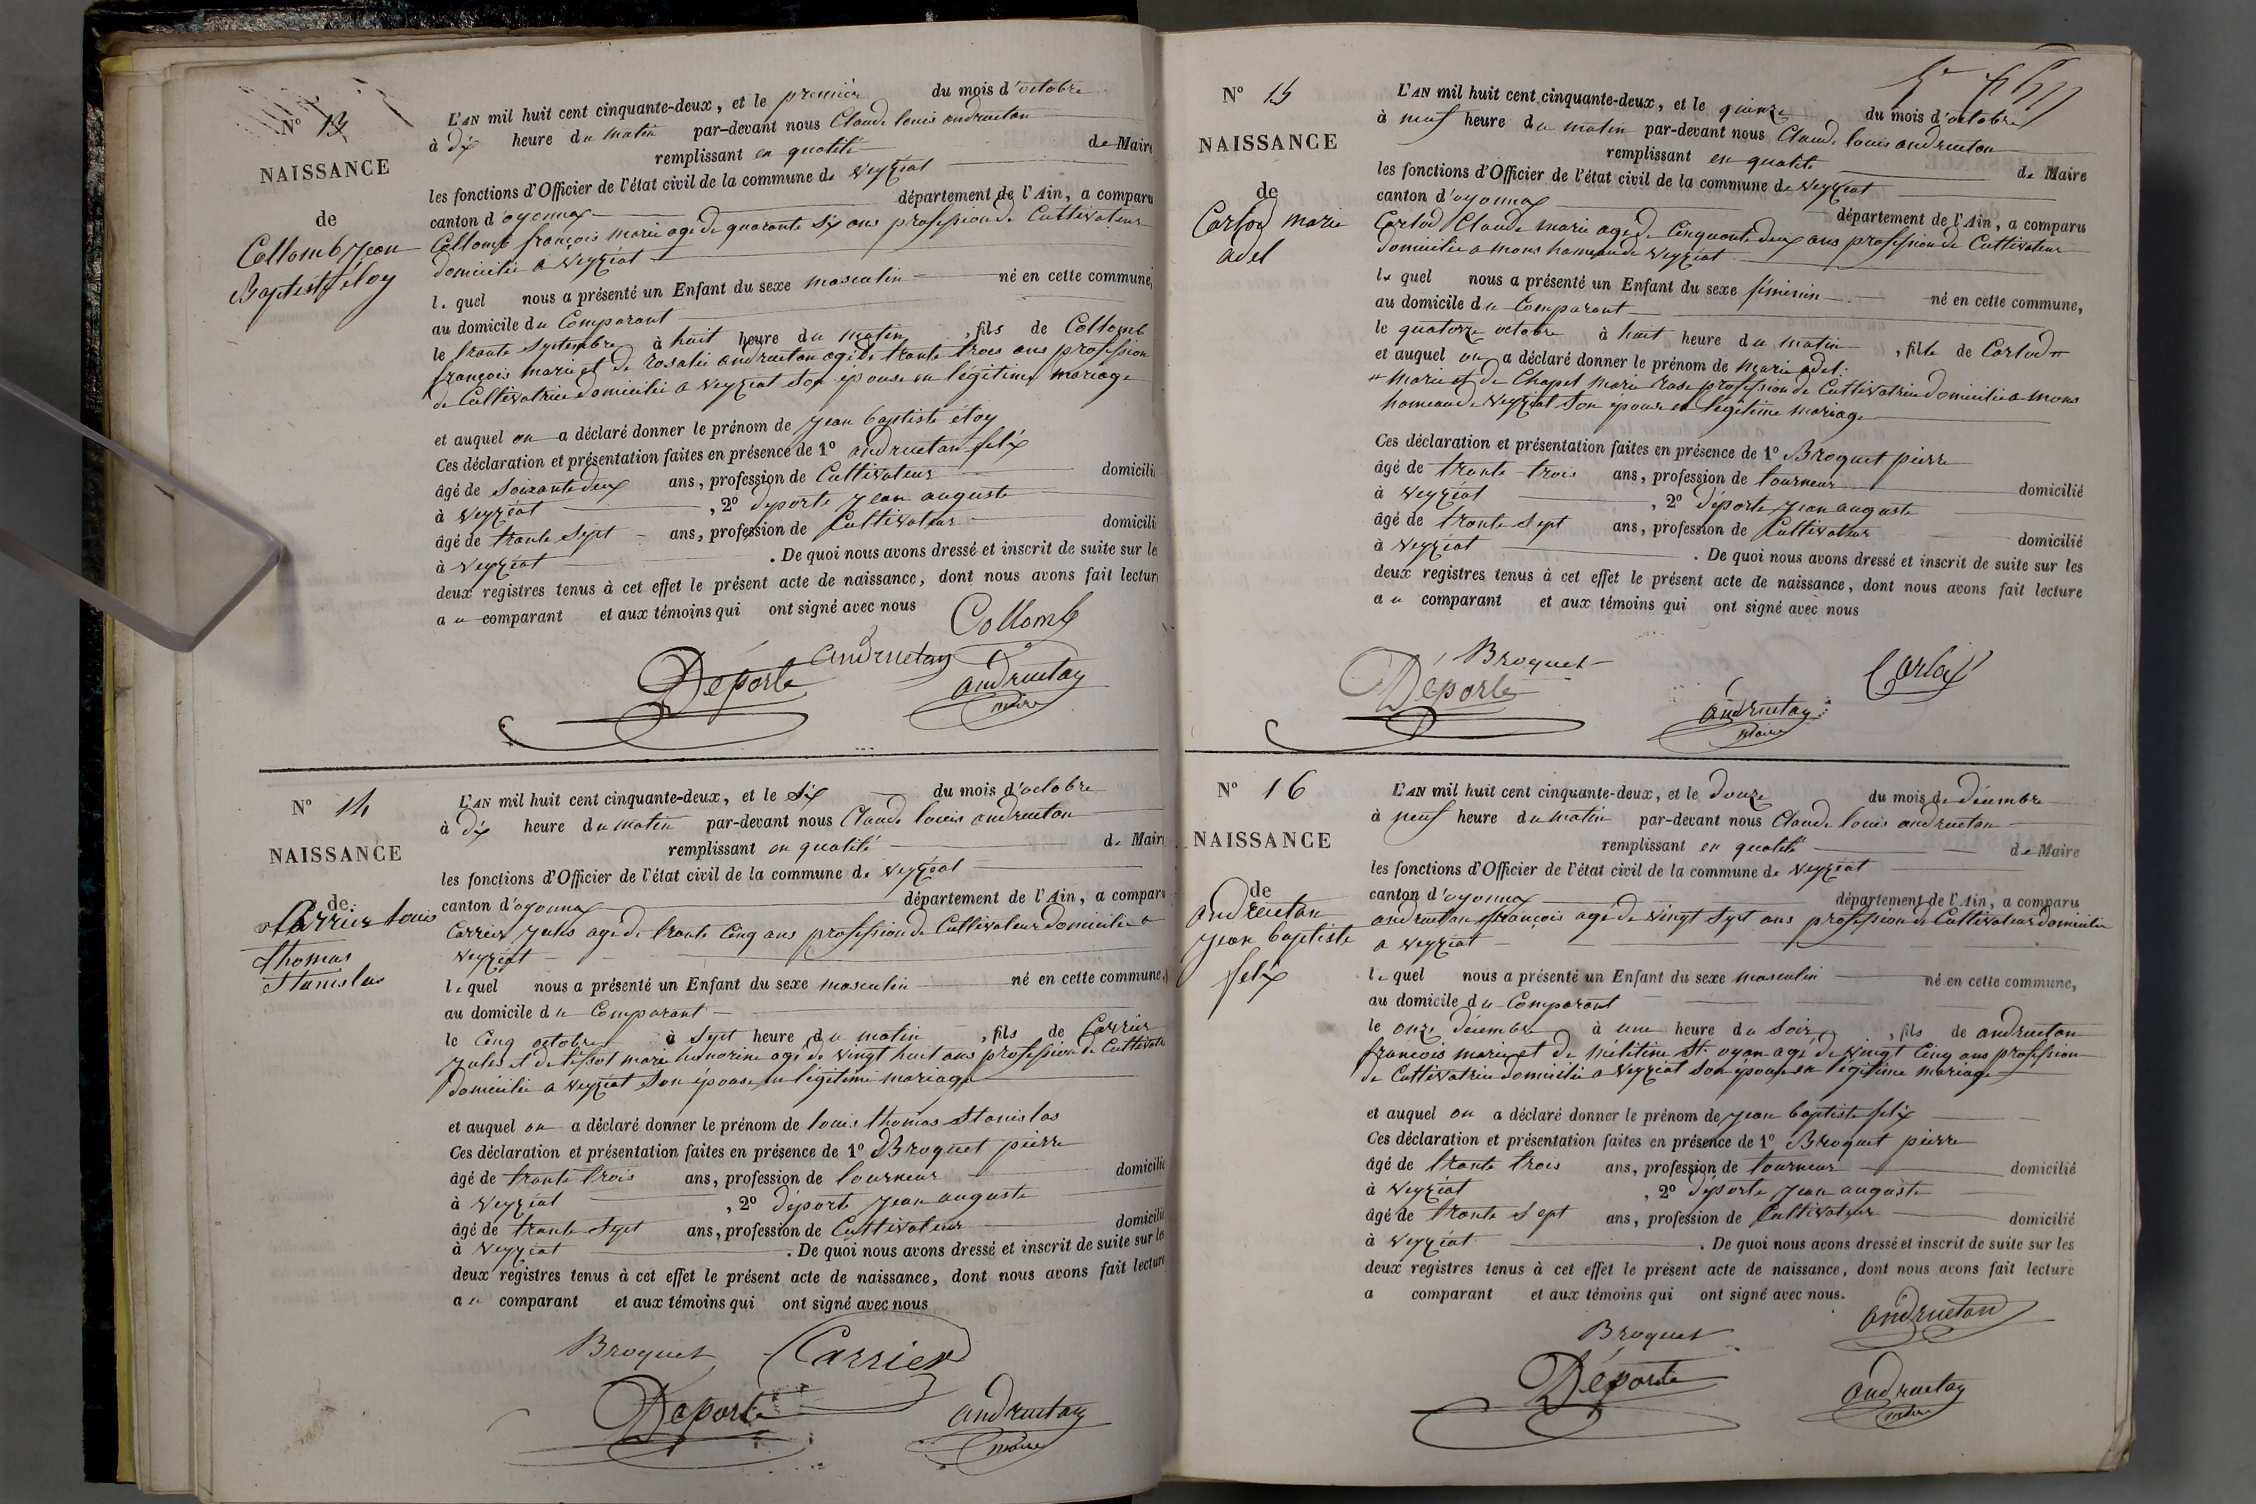 N° 13
NAISSANCE
de
Collomb Jean
Baptiste éloy
L'AN mil huit cent cinquante-deux, et le premier du mois d'octobre
à dix heure du matin par-devant nous Claude louis andruetan
remplissant en qualité de Maire
les fonctions d'Officier de l'état civil de la commune de Veyziat
canton d'oyonnax département de l'Ain, a comparu
Collomb françois marie agé de quarante Six ans profession de Cultivateur
domicilié à Veyziat
le quel nous a présenté un Enfant du sexe masculin né en cette commune,
au domicile du Comparant
le trente Septembre à huit heure du matin, fils de Collomb
françois marie et de rosalie andruetan agé de trente trois ans profession
de Cultivatrice domicilié a Veyziat Son épouse en légitime mariage
et auquel on a déclaré donner le prénom de Jean baptiste éloy
Ces déclaration et présentation faites en présence de 1° andruetan felix
âgé de Soixante deux ans, profession de Cultivateur domicilié
à Veyziat, 2° déporte Jean auguste
âgé de trente Sept ans, profession de Cultivateur domicilié
à Veyziat. De quoi nous avons dressé et inscrit de suite sur les
deux registres tenus à cet effet le présent acte de naissance, dont nous avons fait lecture
au comparant et aux témoins qui ont signé avec nous
Collomb
andruetan
Déporte
andruetan
maire
N° 14
NAISSANCE
de
Carrier louis
thomas
Stanislas
L'AN mil huit cent cinquante-deux, et le Six du mois d'octobre
à dix heure du matin par-devant nous Claude louis andruetan
remplissant en qualité de Maire
les fonctions d'Officier de l'état civil de la commune de Veyziat
canton d'oyonnax département de l'Ain, a comparu
Carrier Jules agé de trente Cinq ans profession de Cultivateur domicilié a
Veyziat
le quel nous a présenté un Enfant du sexe masculin né en cette commune,
au domicile du Comparant
le Cinq octobre à Sept heure du matin, fils de Carrier
Jules et de tissot marie honorine agé de vingt huit ans profession de Cultivatr
domicilié a Veyziat Son épouse en légitime mariage
et auquel on a déclaré donner le prénom de louis thomas Stanislas
Ces déclaration et présentation faites en présence de 1° Broquet pierre
âgé de trente trois ans, profession de tourneur domicilié
à Veyziat, 2° déporte Jean auguste
âgé de trente Sept ans, profession de Cultivateur domicilié
à Veyziat. De quoi nous avons dressé et inscrit de suite sur les
deux registres tenus à cet effet le présent acte de naissance, dont nous avons fait lecture
au comparant et aux témoins qui ont signé avec nous
Broquet Carrier
Déporte
andruetan
maire
N° 15
NAISSANCE
de
Carlod marie
adel
L'AN mil huit cent cinquante-deux, et le quinze du mois d'octobre
à neuf heure du matin par-devant nous Claude louis andruetan
remplissant en qualité de Maire
les fonctions d'Officier de l'état civil de la commune de Veyziat
canton d'oyonnax département de l'Ain, a comparu
Carlod Claude marie age de Cinquante deux ans profession de Cultivateur
domicilié a mons hameau de Veyziat
le quel nous a présenté un Enfant du sexe féminin né en cette commune,
au domicile du Comparant
le quatorze octobre à huit heure du matin, fille de Carlod
et auquel on a déclaré donner le prénom de Marie adel
marie et de Chapel marie rose profession de Cultivatrice domicilié a mons
hameau de Veyziat Son épouse en légitime mariage
Ces déclaration et présentation faites en présence de 1° Broquet pierre
âgé de trente trois ans, profession de tourneur domicilié
à Veyziat, 2° déporte Jean auguste
âgé de trente Sept ans, profession de Cultivateur domicilié
à Veyziat. De quoi nous avons dressé et inscrit de suite sur les
deux registres tenus à cet effet le présent acte de naissance, dont nous avons fait lecture
au comparant et aux témoins qui ont signé avec nous
Broquet
Déporte
Carlod
andruetan
maire
N° 16
NAISSANCE
de
andruetan
Jean baptiste
felix
L'AN mil huit cent cinquante-deux, et le douze du mois de décembre
à neuf heure du matin par-devant nous Claude louis andruetan
remplissant en qualité de Maire
les fonctions d'Officier de l'état civil de la commune de Veyziat
canton d'oyonnax département de l'Ain, a comparu
andruetan françois age de vingt Sept ans profession de Cultivateur domicilié
a Veyziat
le quel nous a présenté un Enfant du sexe masculin né en cette commune,
au domicile du Comparant
le onze décembre à une heure du Soir, fils de andruetan
francois marie et de Mélitine St. oyan agé de vingt Cinq ans profession
de Cultivatrice domicilié a Veyziat Son épouse en légitime mariage
et auquel on a déclaré donner le prénom de Jean baptiste felix
Ces déclaration et présentation faites en présence de 1° Broquet pierre
âgé de trente trois ans, profession de tourneur domicilié
à Veyziat, 2° déporte Jean auguste
âgé de trente Sept ans, profession de Cultivateur domicilié
à Veyziat. De quoi nous avons dressé et inscrit de suite sur les
deux registres tenus à cet effet le présent acte de naissance, dont nous avons fait lecture
a comparant et aux témoins qui ont signé avec nous.
andruetan
Broquet
Déporte
andruetan
maire